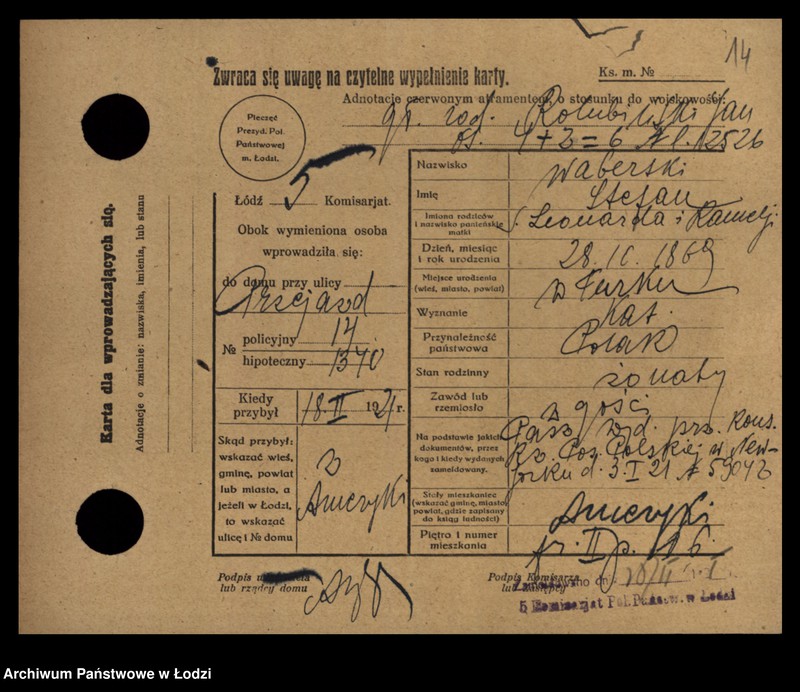 14
Zwraca się uwagę na czytelne wypełnienie karty.
Ks. m. №
Adnotacje czerwonym atramentem, o stosunku do wojskowości:
Jan
4+2=6 № 12526
Pieczęć
Prezyd. Pol.
Państwowej
m. Łodzi.
Łódź 5 Komisarjat.
Obok wymieniona osoba
wprowadziła się:
do domu przy ulicy
Przejazd
№ policyjny 14
hipoteczny 1340
Kiedy przybył 18 II 1921 r.
Skąd przybył:
wskazać wieś,
gminę, powiat
lub miasto, a
jeżeli w Łodzi,
to wskazać
ulicę i № domu
z
Ameryki
Nazwisko Waberski
Imię Stefan
Imiona rodziców i nazwisko panieńskie matki s. Leonarda i Kamelji
Dzień, miesiąc i rok urodzenia 28. 1869
Miejsce urodzenia (wieś, miasto, powiat) w Turku
Wyznanie kat.
Przynależność państwowa Polak
Stan rodzinny żonaty
Zawód lub rzemiosło z gości
Na podstawie jakich dokumentów, przez kogo i kiedy wydanych zameldowany.
Pasz wyd. prz. Kons.
Rz. Polskiej w New-
Jorku d. 3 I 21 № 59042
Stały mieszkaniec (wskazać gminę, miasto, powiat, gdzie zapisany do ksiąg ludności) Ameryki
Piętro i numer mieszkania fr. II p. m 6.
Podpis
lub rządcy domu
Podpis Komisarza
lub
Zameldowano dn.
5 Komisarjat Pol. Państw. w Łodzi
Karta dla wprowadzających się.
Adnotacje o zmianie: nazwiska, imienia, lub stanu
Archiwum Państwowe w Łodzi